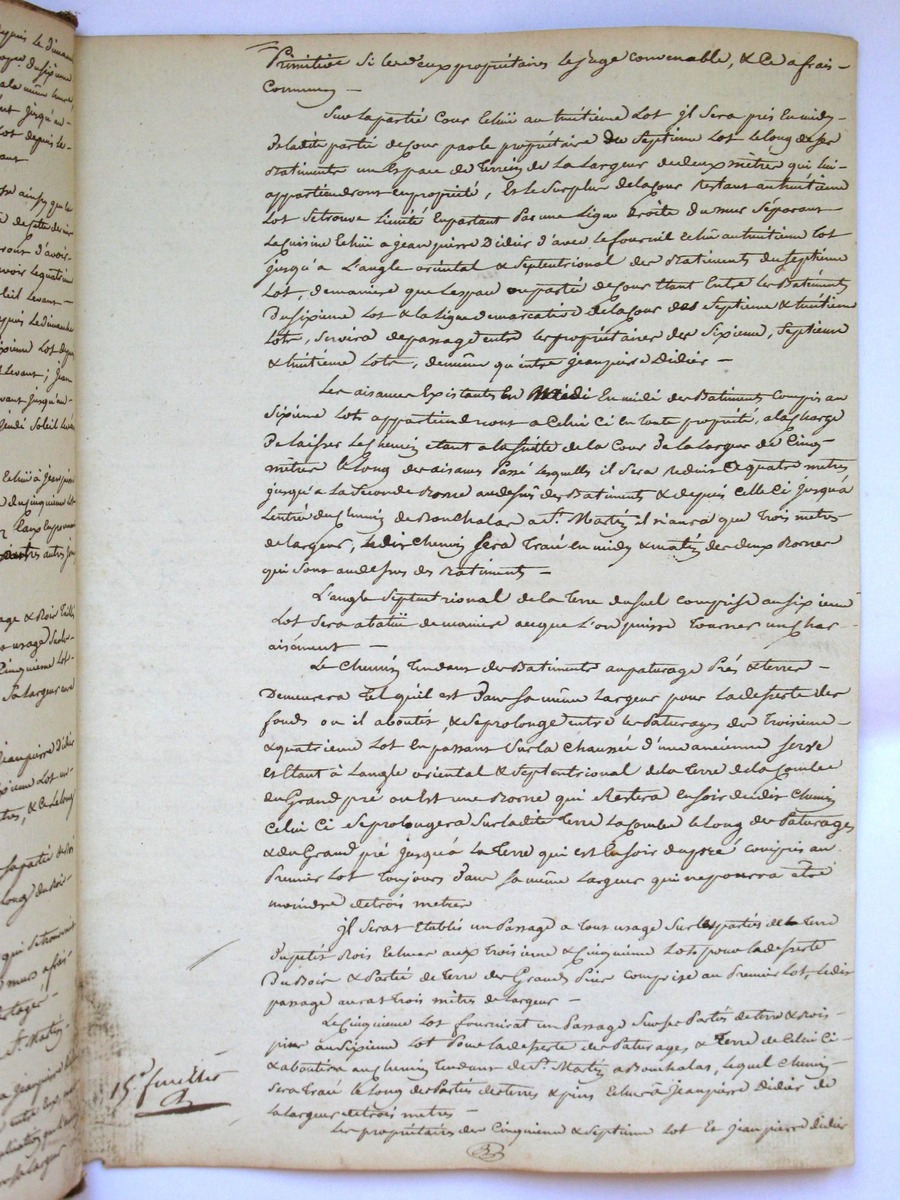 Primitive si les d'eux propriétaires le juge convenable, & Ce a frais
Communs —
Sur la partie Cour Echüe au huitieme Lot il sera pris En midy
De ladite partie de Cour par le propriétaire du Septieme Lot le long de ses
Batiments un Espace de Terrein de La Largeur de deux mètres qui lui
appartiendront en propriété, Et le Surplus de la Cour Restant au huitieme
Lot se trouve Limité En partant Par une Ligne droite du mur Séparant
La Cuisine Echüe a jean pierre Didier d'avec le fournil Echü au huitieme Lot
jusqu'a L'angle oriental & Septentrional des Batiments du Septieme
Lot, de maniere que L'espace ou partie de Cour Etant Entre les Batiments
Du sixieme Lot & la Ligne demarcative de la Cour des Septieme & huitieme
Lots, servira de passage entre les propriétaires des Sixieme, Septieme
& huitieme Lots, de même qu'entre jean pierre Didier —
Les aisances Existantes En midi des Batiments Compris au
Sixieme Lots appartiendront a Celui Ci en Toute propriété, a la charge
De laisser Le Chemin étant a la Suite de la Cour De la largeur de Cinq
mètres le Long des aisances Passé lesquelles il Sera reduit a quatre metres
jusqu'a La Seconde Borne au dessus des Batiments & depuis Celle Ci jusqu'a
L'entrée du Chemin de Bouchalas a St. Martin il n'aura que Trois metres
de largeur, Ledit Chemin Sera Tracé en midy & matin des deux Bornes
qui Sont au dessus des Batiments —
L'angle Septentrional de la Terre compris au sixieme
Lot Sera abatüe de maniere a ce que L'on puisse Tourner un Char
aisément —
Le Chemin Tendant des Batiments au paturage Prés & terres
Demeurera Tel qu'il est Dans sa même Largeur pour La desserte des
fonds ou il aboutit, & se prolonge entre les Paturages des Troisieme
& quatrieme Lot en passant Sur la chaussée d'une ancienne serve
Et Etant à L'angle oriental & Septentrional de la Terre de la Combe
du Grand pré ou Est une Borne qui Restera En soir dudit Chemin
Celui Ci se prolongera Sur ladite Terre La Combe le Long des Paturages
& du Grand pré jusqu'a La Terre qui est En soir du pré compris au
Premier Lot Toujours Dans sa même Largeur qui ne pourra être
moindre de trois metres
il Serat Etablis un Passage a Tout usage Sur les parties de La Terre
Du petit Bois Echues aux Troisieme & Cinquieme Lots pour la desserte
Du Bois & Partie de Terre des Grands Pins comprise au Premier Lot, Ledit
passage aurat Trois mètres de Largeur —
Le Cinquieme Lot fournirat un Passage Sur ses Parties de terre & Bois
au Sixieme Lot Pour La desserte des Paturages & Terre de Celui Ci
& aboutira au Chemin Tendant de St. Martin a Bouchalas, lequel Chemin
Sera Tracé le Long des Parties de terres Echues à Jean pierre Didier de
La largeur de trois metres —
Les propriétaires des Cinquieme & Septieme Lot Et jean pierre Didier
15e. feuillet